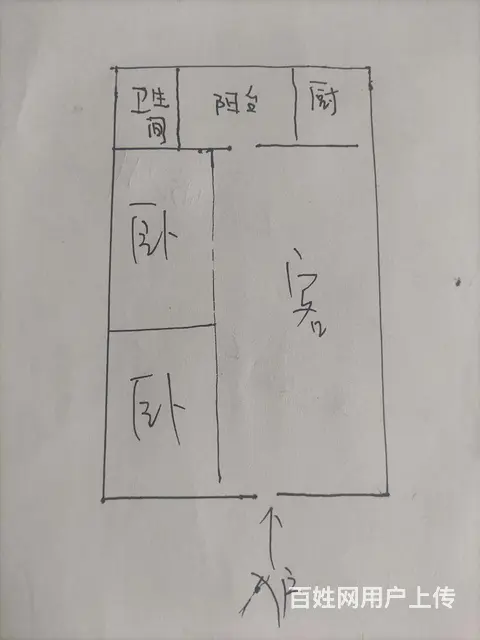 卫生
间
阳台
厨
卧
客
卧
入户
百姓网用户上传